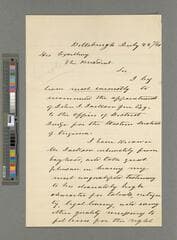 Pittsburgh July 22/
His Excellency
The President
Sir
I beg
leave most earnestly to
recommend the appointment
of John J. Jackson Jr. Esq.
to the office of District
Judge for the Western District
of Virginia.
I have known
Mr Jackson intimately from
boyhood, and take great
pleasure in bearing my
most unqualified testimony
to his character high
character for
legal learning and every
other quality necessary to
fit him for the